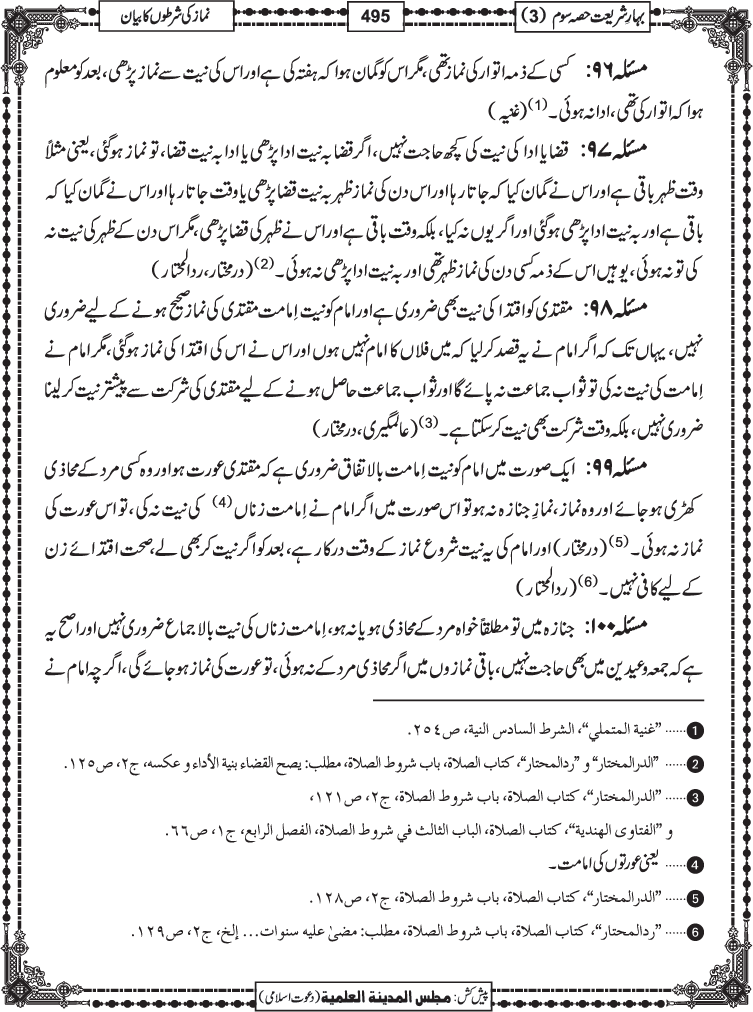 بہارِ شریعت حصہ سوم (3)
495
نماز کی شرطوں کا بیان
مسئلہ ۹۶: کسی کے ذمہ اتوار کی نماز تھی، مگر اس کو گمان ہوا کہ ہفتہ کی ہے اور اس کی نیت سے نماز پڑھی، بعد کو معلوم
ہوا کہ اتوار کی تھی، ادا نہ ہوئی۔ (1) (غنیہ)
مسئلہ ۹۷: قضا یا ادا کی نیت کی کچھ حاجت نہیں، اگر قضا بہ نیت ادا پڑھی یا ادا بہ نیت قضا، تو نماز ہوگئی، یعنی مثلاً
وقت ظہر باقی ہے اور اس نے گمان کیا کہ جاتا رہا اور اس دن کی نماز ظہر بہ نیت قضا پڑھی یا وقت جاتا رہا اور اس نے گمان کیا کہ
باقی ہے اور بہ نیت ادا پڑھی ہوگئی اور اگر یوں نہ کیا، بلکہ وقت باقی ہے اور اس نے ظہر کی قضا پڑھی، مگر اس دن کے ظہر کی نیت نہ
کی تو نہ ہوئی، یوہیں اس کے ذمہ کسی دن کی نماز ظہر تھی اور بہ نیت ادا پڑھی نہ ہوئی۔ (2) (درمختار، ردالمحتار)
مسئلہ ۹۸: مقتدی کو اقتدا کی نیت بھی ضروری ہے اور امام کو نیت اِمامت مقتدی کی نماز صحیح ہونے کے لیے ضروری
نہیں، یہاں تک کہ اگر امام نے یہ قصد کرلیا کہ میں فلاں کا امام نہیں ہوں اور اس نے اس کی اقتدا کی نماز ہوگئی، مگر امام نے
اِمامت کی نیت نہ کی تو ثواب جماعت نہ پائے گا اور ثواب جماعت حاصل ہونے کے لیے مقتدی کی شرکت سے پیشتر نیت کر لینا
ضروری نہیں، بلکہ وقت شرکت بھی نیت کرسکتا ہے۔ (3) (عالمگیری، درمختار)
مسئلہ ۹۹: ایک صورت میں امام کو نیت اِمامت بالاتفاق ضروری ہے کہ مقتدی عورت ہو اور وہ کسی مرد کے محاذی
کھڑی ہو جائے اور وہ نماز، نمازِ جنازہ نہ ہو تو اس صورت میں اگر امام نے اِمامت زناں (4) کی نیت نہ کی، تو اس عورت کی
نماز نہ ہوئی۔ (5) (درمختار) اور امام کی یہ نیت شروع نماز کے وقت درکار ہے، بعد کو اگر نیت کر بھی لے، صحت اقتدائے زن
کے لیے کافی نہیں۔ (6) (ردالمحتار)
مسئلہ ۱۰۰: جنازہ میں تو مطلقاً خواہ مرد کے محاذی ہو یا نہ ہو، اِمامت زناں کی نیت بالاجماع ضروری نہیں اور اصح یہ
ہے کہ جمعہ و عیدین میں بھی حاجت نہیں، باقی نمازوں میں اگر محاذی مرد کے نہ ہوئی، تو عورت کی نماز ہو جائے گی، اگرچہ امام نے
1 ...... ”غنية المتملي“، الشرط السادس النية، ص٢٥٤.
2 ...... ”الدرالمختار“ و ”ردالمحتار“، كتاب الصلاة، باب شروط الصلاة، مطلب: يصح القضاء بنية الأداء و عكسه، ج٢، ص١٢٥.
3 ...... ”الدرالمختار“، كتاب الصلاة، باب شروط الصلاة، ج٢، ص١٢١،
و ”الفتاوى الهندية“، كتاب الصلاة، الباب الثالث في شروط الصلاة، الفصل الرابع، ج١، ص٦٦.
4 ...... یعنی عورتوں کی امامت۔
5 ...... ”الدرالمختار“، كتاب الصلاة، باب شروط الصلاة، ج٢، ص١٢٨.
6 ...... ”ردالمحتار“، كتاب الصلاة، باب شروط الصلاة، مطلب: مضىٰ عليه سنوات... إلخ، ج٢، ص١٢٩.
پیش کش: مجلس المدينة العلمية (دعوت اسلامی)